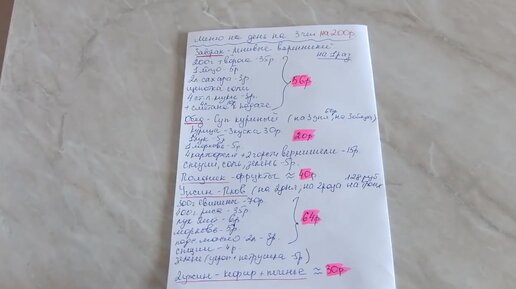 Меню на день на 3 чел на 200р
Завтрак - Ленивые вареники на 1 раз
200г творога - 35р
1 яйцо - 6р
2л сахара - 3р
щепотка соли
4 ст л муки - 3р
+ сметана к подаче
56р
Обед - Суп куриный (на 3 дня,
Курица - 3 куска 30р
1 лук - 5
1 морковь - 5р
20р
4 картофеля + 2 горсти вермишели - 15р
специи, соль, зелень - 5р.
Полдник - фрукты ≈ 40р
128 руб
Ужин - Плов (на 2 дня, на 2 раза
300г свинины - 70р
400г риса - 35р
лук
морковь - 5р
масло - 2л - 3р
специи - 4р
64р
зелень (укроп + петрушка - 5р)
2 ужин - кефир + печенье ≈ 30р